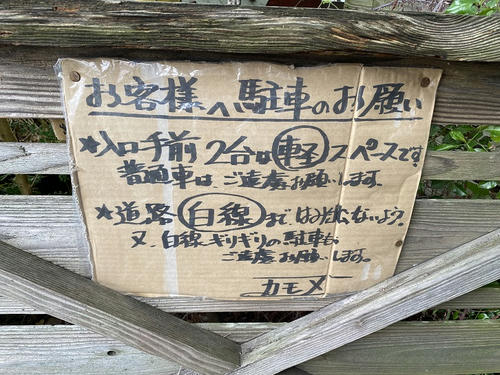 お客様へ駐車のお願い
★入口手前2台は軽スペースです。
普通車は、ご遠慮お願いします。
★道路白線まではみ出ないよう。
又、白線ギリギリの駐車も
ご遠慮お願いします。
カモメ